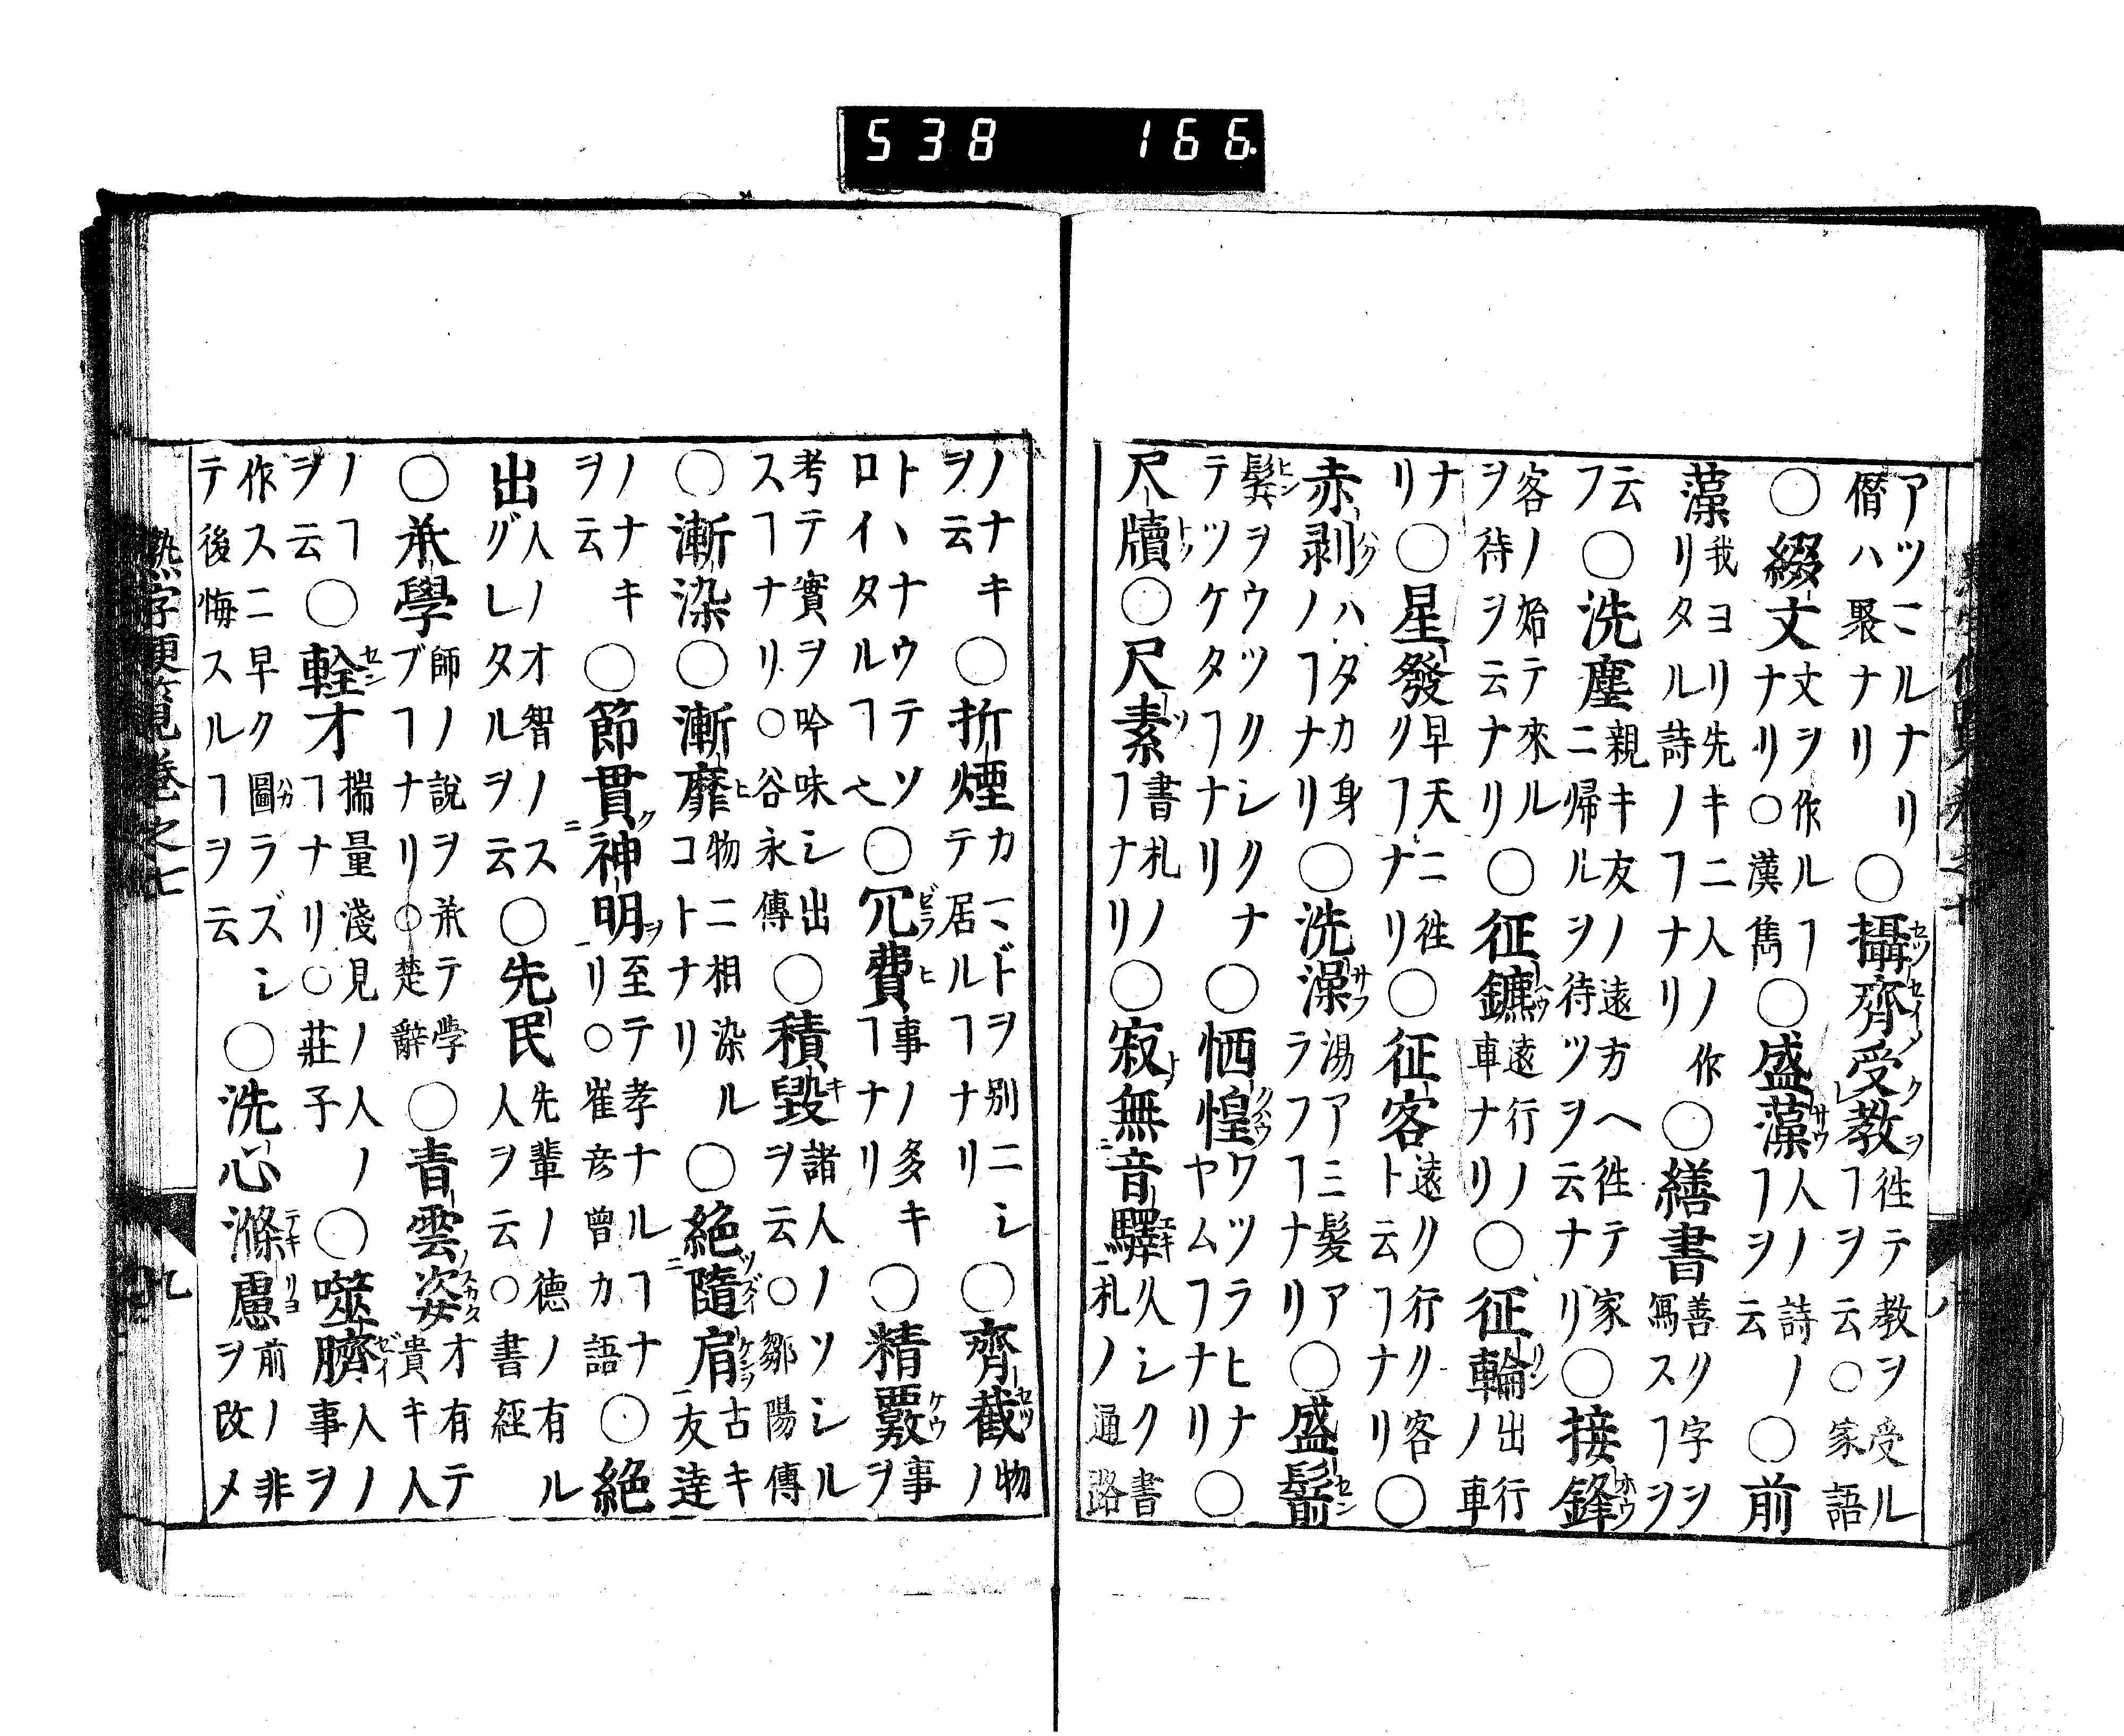 538 166
アツマルナリ僭ハ聚ナリ○攝齊受教往テ教ヲ受ルヿヲ云○家語
○綴文文ヲ作ルヿナリ○漢雋○盛藻人ノ詩ノヿヲ云○前
藻我ヨリ先キニ人ノ作リタル詩ノヿナリ○繕書善ク字ヲ寫スヿヲ
云フ○洗塵親キ友ノ遠方ヘ往テ家ニ帰ルヲ待ツヲ云ナリ○接鋒
客ノ始テ來ルヲ待ヲ云ナリ○征鑣遠行ノ車ナリ○征輪出行ノ車
ナリ○星發早天ニ往クヿナリ○征客遠ク行ク客ト云ヿナリ○
赤剥ハタカ身ノヿナリ○洗澡湯アミ髪アラフヿナリ○盛鬋
鬂ヲウツクシクナテツケタヿナリ○恓惶ワツラヒナヤムヿナリ○
尺牘○尺素書札ノヿナリ○寂無音驛久シク書札ノ通路
ノナキヲ云○折煙カマドヲ別ニシテ居ルヿナリ○齊截物ノ
トハナウテソロイタルヿ也○冗費事ノ多キヿナリ○精覈事ヲ
考テ實ヲ吟味シ出スヿナリ○谷永傳○積毀諸人ノソシルヲ云○鄒陽傳
○漸染○漸靡物ニ相染ルコトナリ○絶隨肩古キ友達
ノナキヲ云○節貫神明至テ孝ナルヿナリ○崔彦曾カ語○絶
出人ノオ智ノススグレタルヲ云○先民先輩ノ德ノ有ル人ヲ云○書經
○承學師ノ説ヲ承テ學ブヿナリ○楚辭○青雲姿才有テ貴キ人
ノヿヲ云○輇才揣量淺見ノ人ノヿナリ○莊子○噬臍人ノ事ヲ
作スニ早ク圖ラズシテ後悔スルヿヲ云○洗心滌慮前ノ非ヲ改メ
熟字便覧巻之七 九